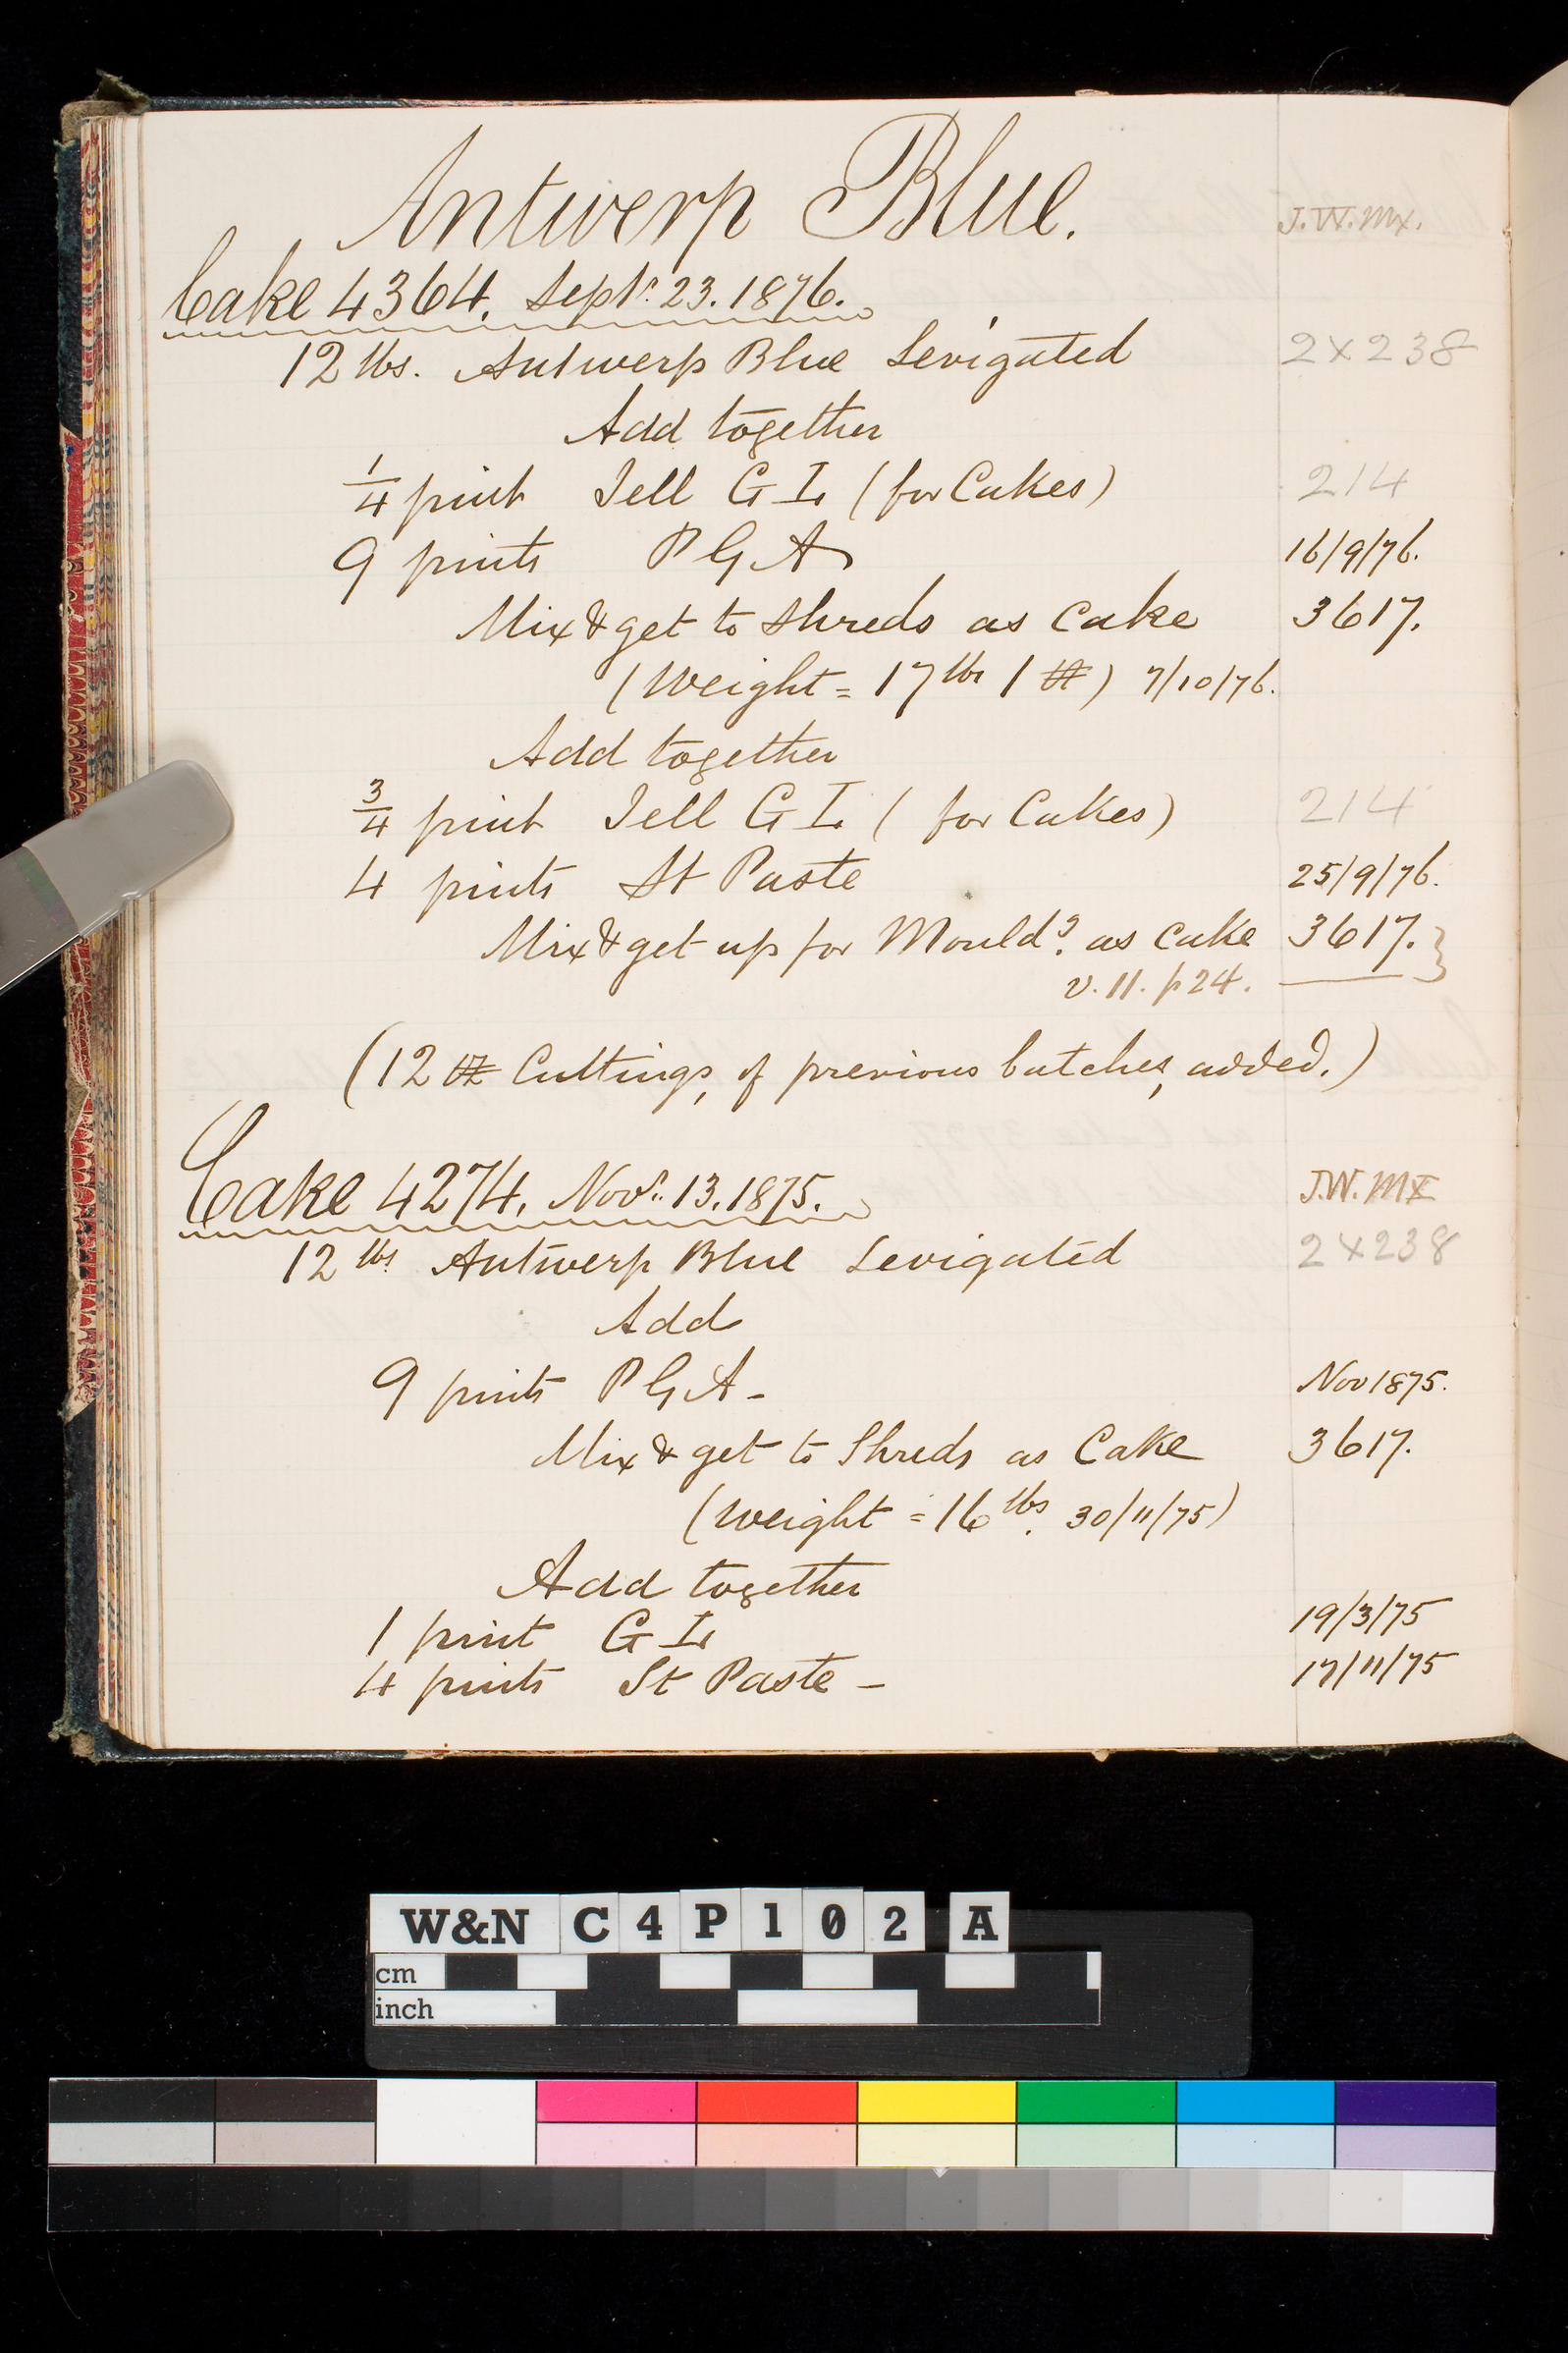 Antwerp Blue.
J.W.Mx.
Cake 4364. Septr. 23. 1876.
12 lbs. Antwerp Blue Levigated 2x238
Add together
1/4 pint Jell GL (for Cakes) 214
9 pints PGA 16/9/76.
Mix & get to shreds as Cake 3617.
(Weight = 17 lbs 1 ) 7/10/76.
Add together
3/4 pint Jell GL (for Cakes) 214
4 pints St Paste 25/9/76.
Mix & get up for Mouldg. as Cake 3617. }
v. 11. p 24.
(12 oz Cuttings, of previous batches, added.)
Cake 4274. Novr. 13. 1875. J.W. MX
12 lbs Antwerp Blue Levigated 2x238
Add
9 pints PGA - Nov 1875.
Mix & get to Shreds as Cake 3617.
(Weight = 16 lbs. 30/11/75)
Add together
1 pint GL 19/3/75
4 pints St Paste - 17/11/75
W&N C4P102 A
cm
inch